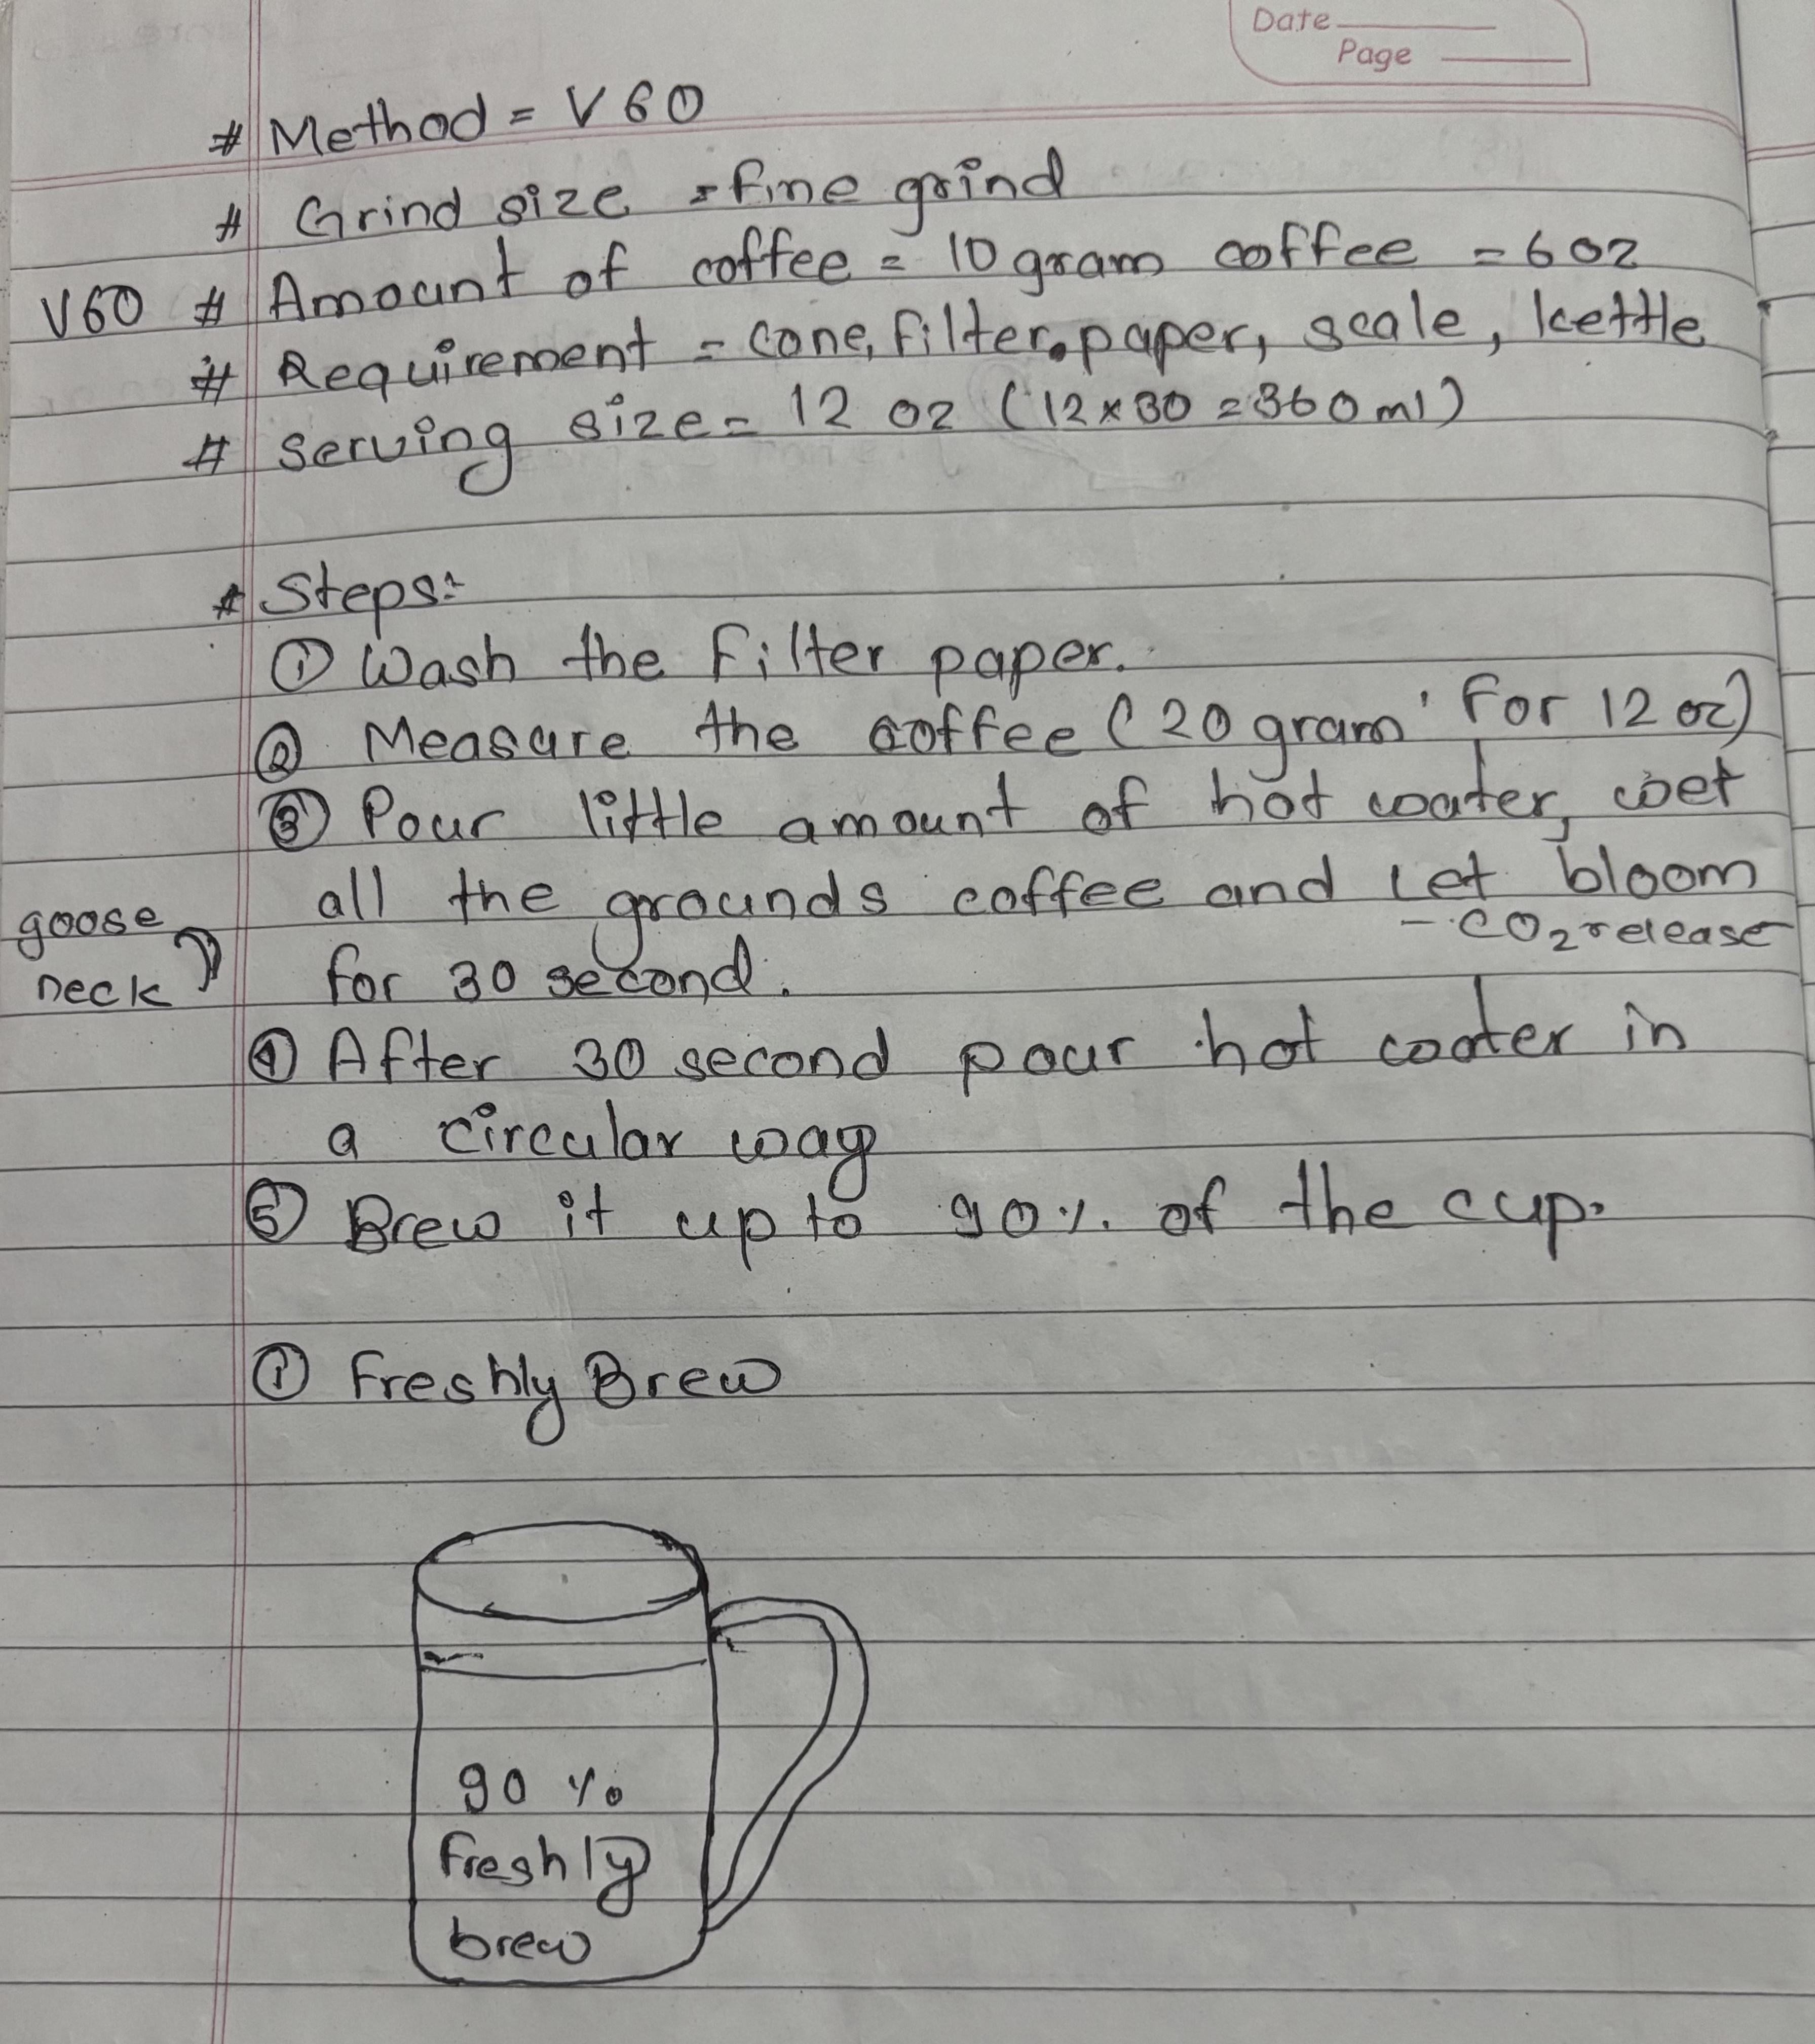 Date
Page
# Method = V60
# Grind size = fine grind
V60 # Amount of coffee = 10 gram coffee = 6 oz
# Requirement = cone, filter paper, scale, kettle
# Serving size = 12 oz (12 x 30 = 360 ml)
* Steps:-
① Wash the filter paper.
② Measure the coffee (20 gram for 12 oz)
③ Pour little amount of hot water, wet
all the grounds coffee and Let bloom
- CO2 release
goose
neck
for 30 second.
④ After 30 second pour hot water in
a circular way
⑤ Brew it up to 90% of the cup.
① Freshly Brew
90 %
freshly
brew